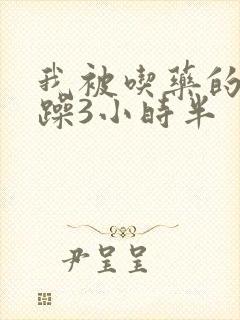 我被喫藥的
躁3小時半
尹呈呈